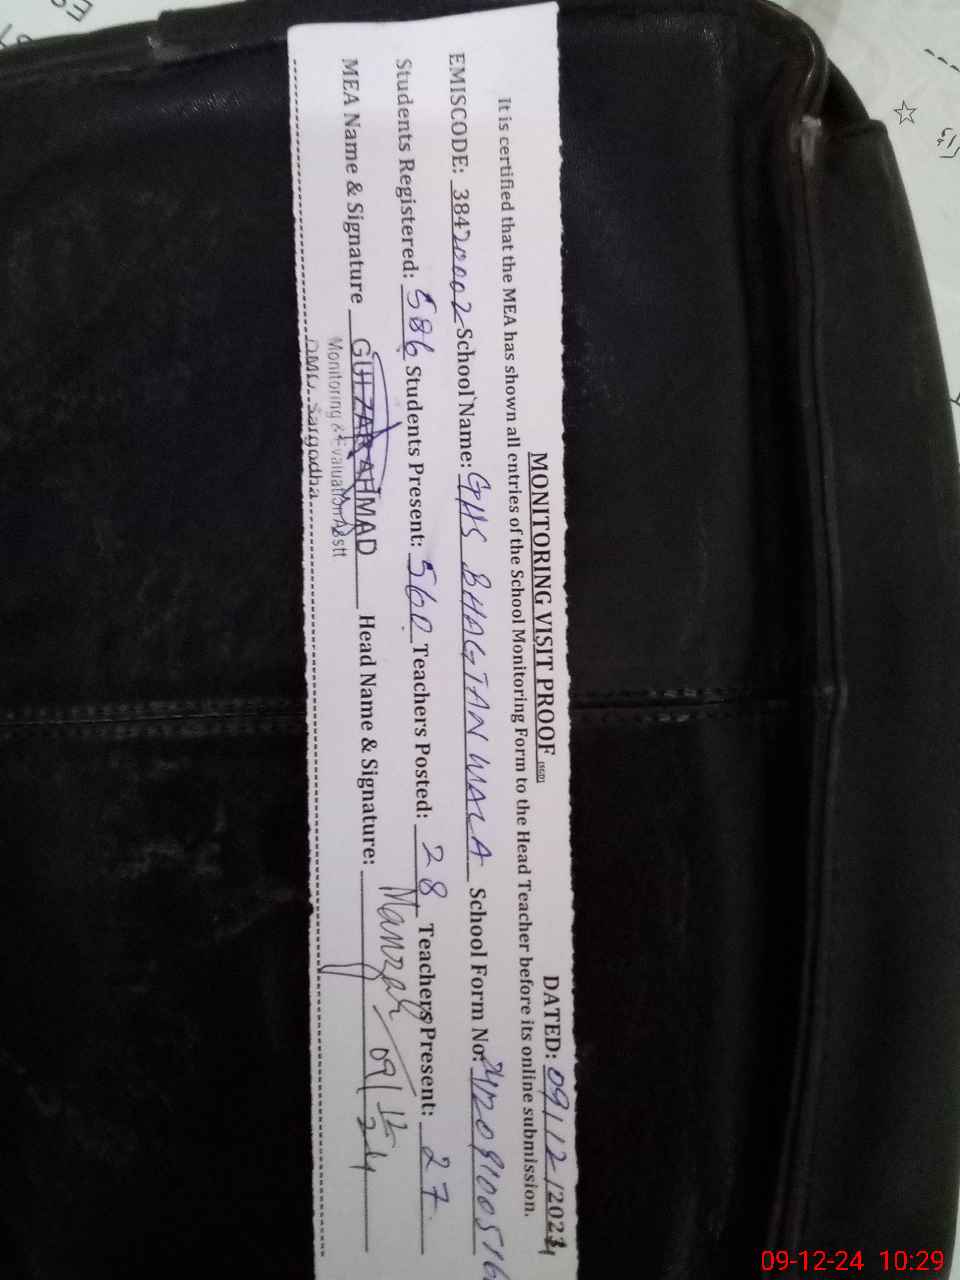 MONITORING VISIT PROOF (SGD) DATED: 09/12/2024
It is certified that the MEA has shown all entries of the School Monitoring Form to the Head Teacher before its online submission.
EMISCODE: 38420002 School Name: GHS BHAGTANWALA School Form No: 241209100516
Students Registered: 586 Students Present: 560 Teachers Posted: 28 Teachers Present: 27
MEA Name & Signature GULZAR AHMAD Head Name & Signature: 09/12/24
Monitoring & Evaluation Asstt
DMO. Sargodha
09-12-24 10:29